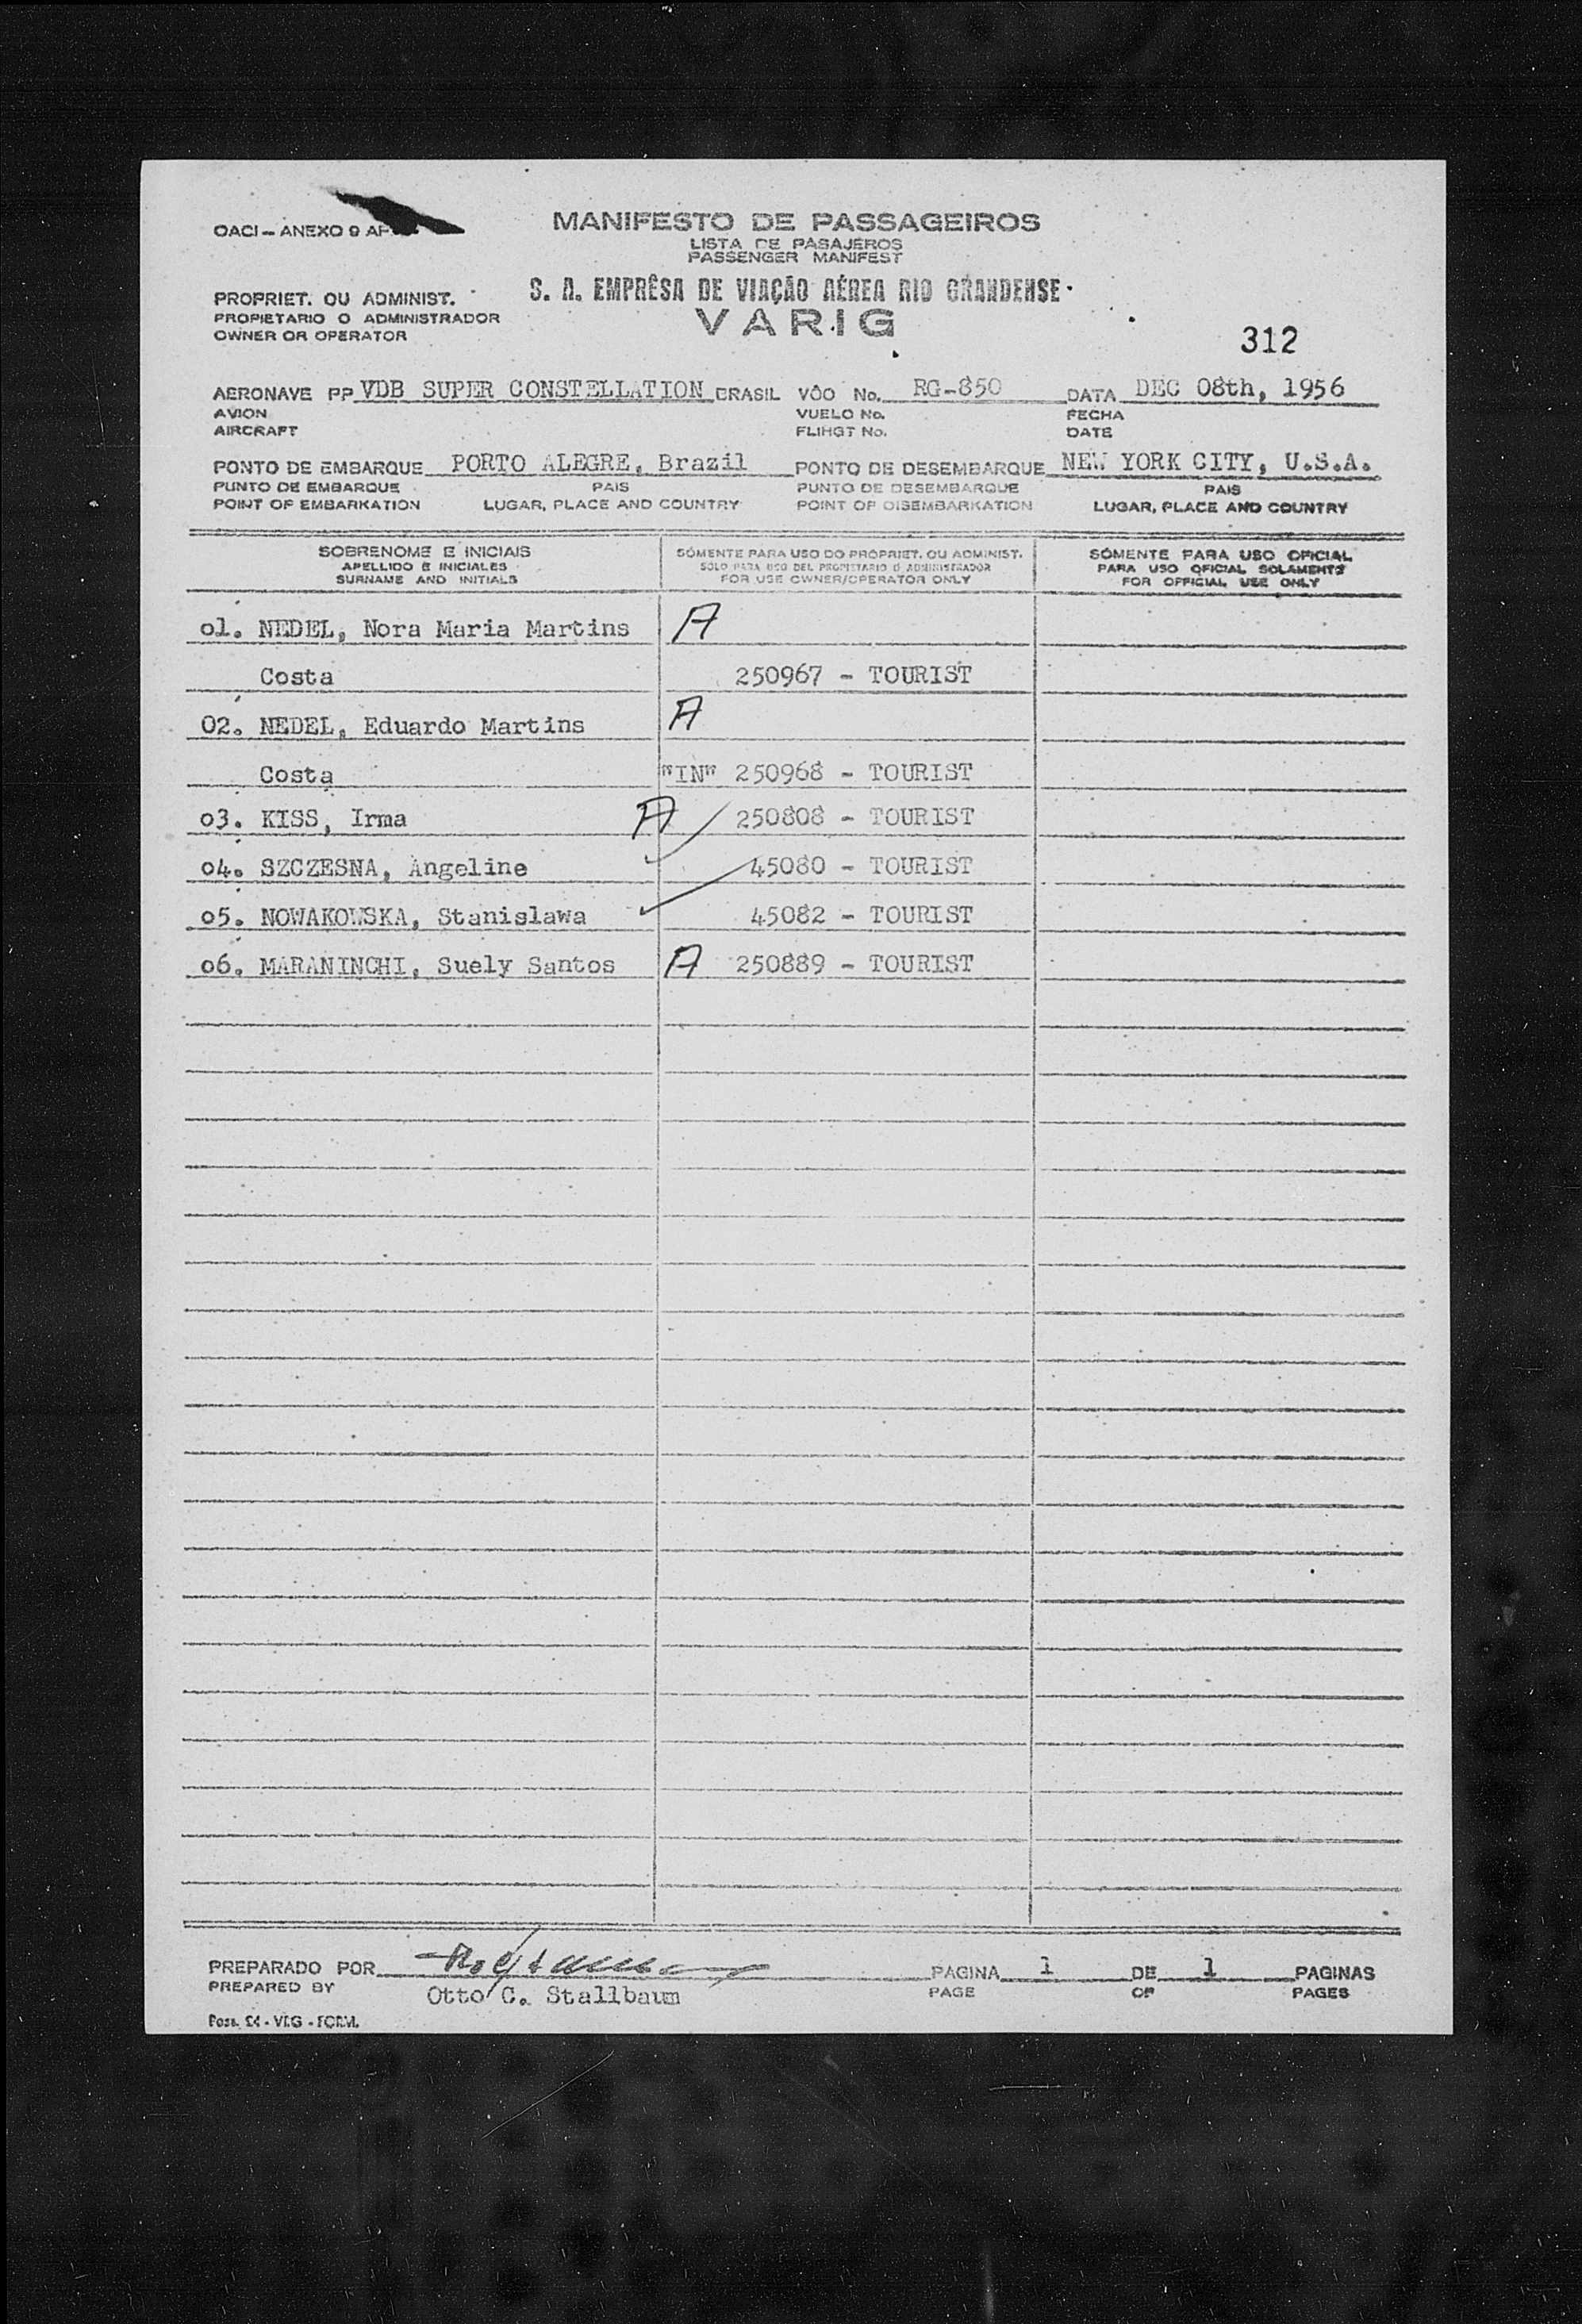 OACI – ANEXO 9 AP
MANIFESTO DE PASSAGEIROS
LISTA DE PASAJEROS
PASSENGER MANIFEST
PROPRIET. OU ADMINIST.
PROPIETARIO O ADMINISTRADOR
OWNER OR OPERATOR
S. A. EMPRÊSA DE VIAÇÃO AÉREA RIO GRANDENSE
VARIG
312
AERONAVE PP VDB SUPER CONSTELLATION BRASIL VÔO No. RG-850 DATA DEC 08th, 1956
AVION VUELO No. FECHA
AIRCRAFT FLIHGT No. DATE
PONTO DE EMBARQUE PORTO ALEGRE, Brazil PONTO DE DESEMBARQUE NEW YORK CITY, U.S.A.
PUNTO DE EMBARQUE PAIS PUNTO DE DESEMBARQUE PAIS
POINT OF EMBARKATION LUGAR, PLACE AND COUNTRY POINT OF DISEMBARKATION LUGAR, PLACE AND COUNTRY
SOBRENOME E INICIAIS SÓMENTE PARA USO DO PROPRIET. OU ADMINIST. SÓMENTE PARA USO OFICIAL
APELLIDO E INICIALES SOLO PARA USO DEL PROPIETARIO O ADMINISTRADOR PARA USO OFICIAL SOLAMENTE
SURNAME AND INITIALS FOR USE OWNER/OPERATOR ONLY FOR OFFICIAL USE ONLY
01. NEDEL, Nora Maria Martins A
Costa 250967 - TOURIST
02. NEDEL, Eduardo Martins A
Costa "IN" 250968 - TOURIST
03. KISS, Irma A 250808 - TOURIST
04. SZCZESNA, Angeline 45080 - TOURIST
05. NOWAKOWSKA, Stanislawa 45082 - TOURIST
06. MARANINCHI, Suely Santos A 250889 - TOURIST
PREPARADO POR PAGINA 1 DE 1 PAGINAS
PREPARED BY Otto C. Stallbaum PAGE OF PAGES